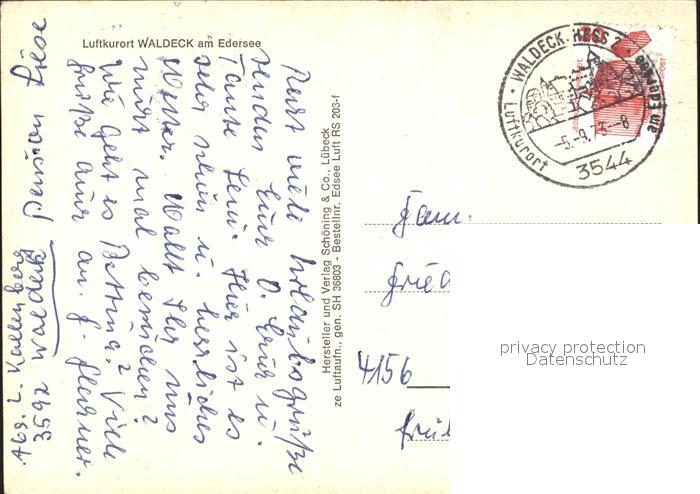 Luftkurort WALDECK am Edersee
Abs. L. Kallenberg
3592 Waldeck
Pension Liese
Recht viele Urlaubsgrüße
senden Euch O. u.
Tante Leni. Hier ist es
sehr schön u. herrliches
Wetter. Wollt Ihr uns
nicht mal besuchen?
Wie geht es Bettina? Viele
Grüße auch an.
Hersteller und Verlag Schöning & Co., Lübeck
ze Luftaufn., gen. SH 36803 - Bestellnr. Edsee Luft RS 203-f
WALDECK, HESS 2
am Edersee
Luftkurort
-5.-9. -8
3544
Fam.
Fried
4156
privacy protection
Datenschutz